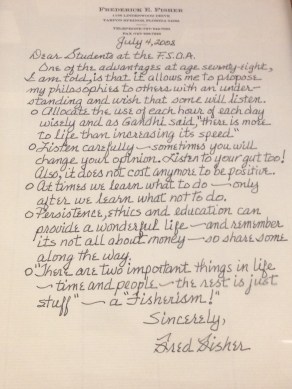 FREDERICK E. FISHER
July 4, 2008
Dear Students at the F.S.O.A.
One of the advantages at age seventy-eight,
I am told, is that it allows me to propose
my philosophies to others with an under-
standing and wish that some will listen.
o Allocate the use of each hour of each day
wisely and as Gandhi said, "there is more
to Life than increasing its speed."
o Listen carefully — sometimes you will
change your opinion. Listen to your gut too!
Also, it does not cost anymore to be positive.
o At times we learn what to do — only
after we learn what not to do.
o Persistence, ethics and education can
provide a wonderful life — and remember
its not all about money — so share some
along the way.
o "There are two important things in life
— time and people — the rest is just
stuff" — a "Fisherism!"
Sincerely,
Fred Fisher